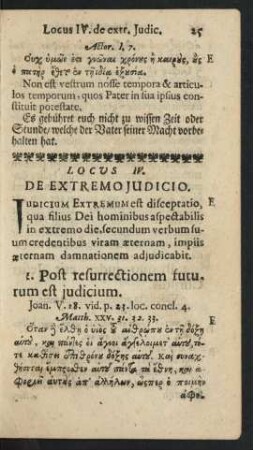 Locus IV. de extr. Judic. 25
Actor. 1, 7.
Οὐχ ὑμῶν ἐςι γνῶναι χρόνες ἢ καιρὰς, ὃς E
ὁ πατὴρ ἔθετ ἐν τῇ ἰδίᾳ ἐξεσίᾳ.
Non est vestrum nosse tempora & articu-
los temporum, quos Pater in sua ipsus con-
stituit potestate.
Es gebühret euch nicht zu wissen Zeit oder
Stunde/ welche der Vater seiner Macht vorbe-
halten hat.
LOCUS IV.
DE EXTREMO JUDICIO.
JUDICIUM EXTREMUM est disceptatio, E
qua filius Dei hominibus aspectabilis
in extremo die, secundum verbum su-
um credentibus vitam æternam, impiis
æternam damnationem adjudicabit.
1. Post resurrectionem futu-
rum est judicium.
Joan. V. 28. vid. p. 23. loc. concl. 4.
Matth. XXV. 31. 32. 33.
Ὅταν ἢ ἔλθῃ ὁ υἱὸς τῦ ἀνθρώπε ἐν τῇ δόξῃ E
αὐτῦ, καὶ πάντες οἱ ἅγιοι ἄγγελοι μετ' αὐτῦ, τό-
τε καθίσει ἐπὶ θρόνε δόξης αὐτῦ. Καὶ συναχ-
θήσεται ἔμπροσθεν αὐτῦ πάντα τὰ ἔθνη, καὶ ἀ-
φοριεῖ αὐτὰς ἀπ' ἀλλήλων, ὥσπερ ὁ ποιμὴν
ἀφο-